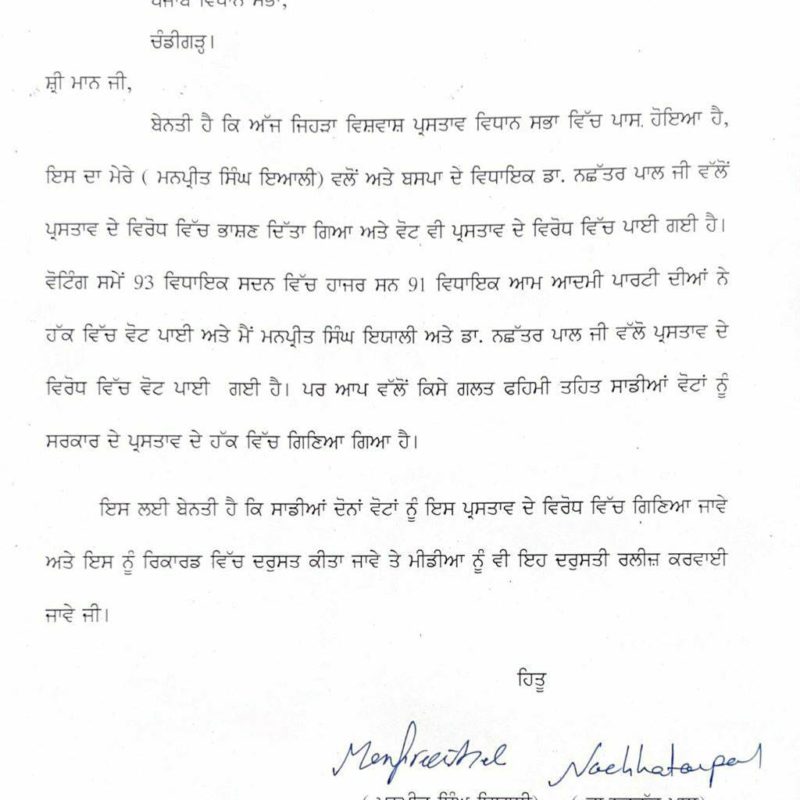 ਪੰਜਾਬ ਵਿਧਾਨ ਸਭਾ,
ਚੰਡੀਗੜ੍ਹ।
ਸ਼੍ਰੀ ਮਾਨ ਜੀ,
ਬੇਨਤੀ ਹੈ ਕਿ ਅੱਜ ਜਿਹੜਾ ਵਿਸ਼ਵਾਸ਼ ਪ੍ਰਸਤਾਵ ਵਿਧਾਨ ਸਭਾ ਵਿੱਚ ਪਾਸ ਹੋਇਆ ਹੈ,
ਇਸ ਦਾ ਮੇਰੇ ( ਮਨਪ੍ਰੀਤ ਸਿੰਘ ਇਆਲੀ) ਵਲੋਂ ਅਤੇ ਬਸਪਾ ਦੇ ਵਿਧਾਇਕ ਡਾ. ਨਛੱਤਰ ਪਾਲ ਜੀ ਵੱਲੋਂ
ਪ੍ਰਸਤਾਵ ਦੇ ਵਿਰੋਧ ਵਿੱਚ ਭਾਸ਼ਣ ਦਿੱਤਾ ਗਿਆ ਅਤੇ ਵੋਟ ਵੀ ਪ੍ਰਸਤਾਵ ਦੇ ਵਿਰੋਧ ਵਿੱਚ ਪਾਈ ਗਈ ਹੈ।
ਵੋਟਿੰਗ ਸਮੇਂ 93 ਵਿਧਾਇਕ ਸਦਨ ਵਿੱਚ ਹਾਜਰ ਸਨ 91 ਵਿਧਾਇਕ ਆਮ ਆਦਮੀ ਪਾਰਟੀ ਦੀਆਂ ਨੇ
ਹੱਕ ਵਿੱਚ ਵੋਟ ਪਾਈ ਅਤੇ ਮੈਂ ਮਨਪ੍ਰੀਤ ਸਿੰਘ ਇਯਾਲੀ ਅਤੇ ਡਾ. ਨਛੱਤਰ ਪਾਲ ਜੀ ਵੱਲੋ ਪ੍ਰਸਤਾਵ ਦੇ
ਵਿਰੋਧ ਵਿੱਚ ਵੋਟ ਪਾਈ ਗਈ ਹੈ। ਪਰ ਆਪ ਵੱਲੋਂ ਕਿਸੇ ਗਲਤ ਫਹਿਮੀ ਤਹਿਤ ਸਾਡੀਆਂ ਵੋਟਾਂ ਨੂੰ
ਸਰਕਾਰ ਦੇ ਪ੍ਰਸਤਾਵ ਦੇ ਹੱਕ ਵਿੱਚ ਗਿਣਿਆ ਗਿਆ ਹੈ।
ਇਸ ਲਈ ਬੇਨਤੀ ਹੈ ਕਿ ਸਾਡੀਆਂ ਦੋਨਾਂ ਵੋਟਾਂ ਨੂੰ ਇਸ ਪ੍ਰਸਤਾਵ ਦੇ ਵਿਰੋਧ ਵਿੱਚ ਗਿਣਿਆ ਜਾਵੇ
ਅਤੇ ਇਸ ਨੂੰ ਰਿਕਾਰਡ ਵਿੱਚ ਦਰੁਸਤ ਕੀਤਾ ਜਾਵੇ ਤੇ ਮੀਡੀਆ ਨੂੰ ਵੀ ਇਹ ਦਰੁਸਤੀ ਰਲੀਜ਼ ਕਰਵਾਈ
ਜਾਵੇ ਜੀ।
ਹਿਤੂ
Nachhatarpal